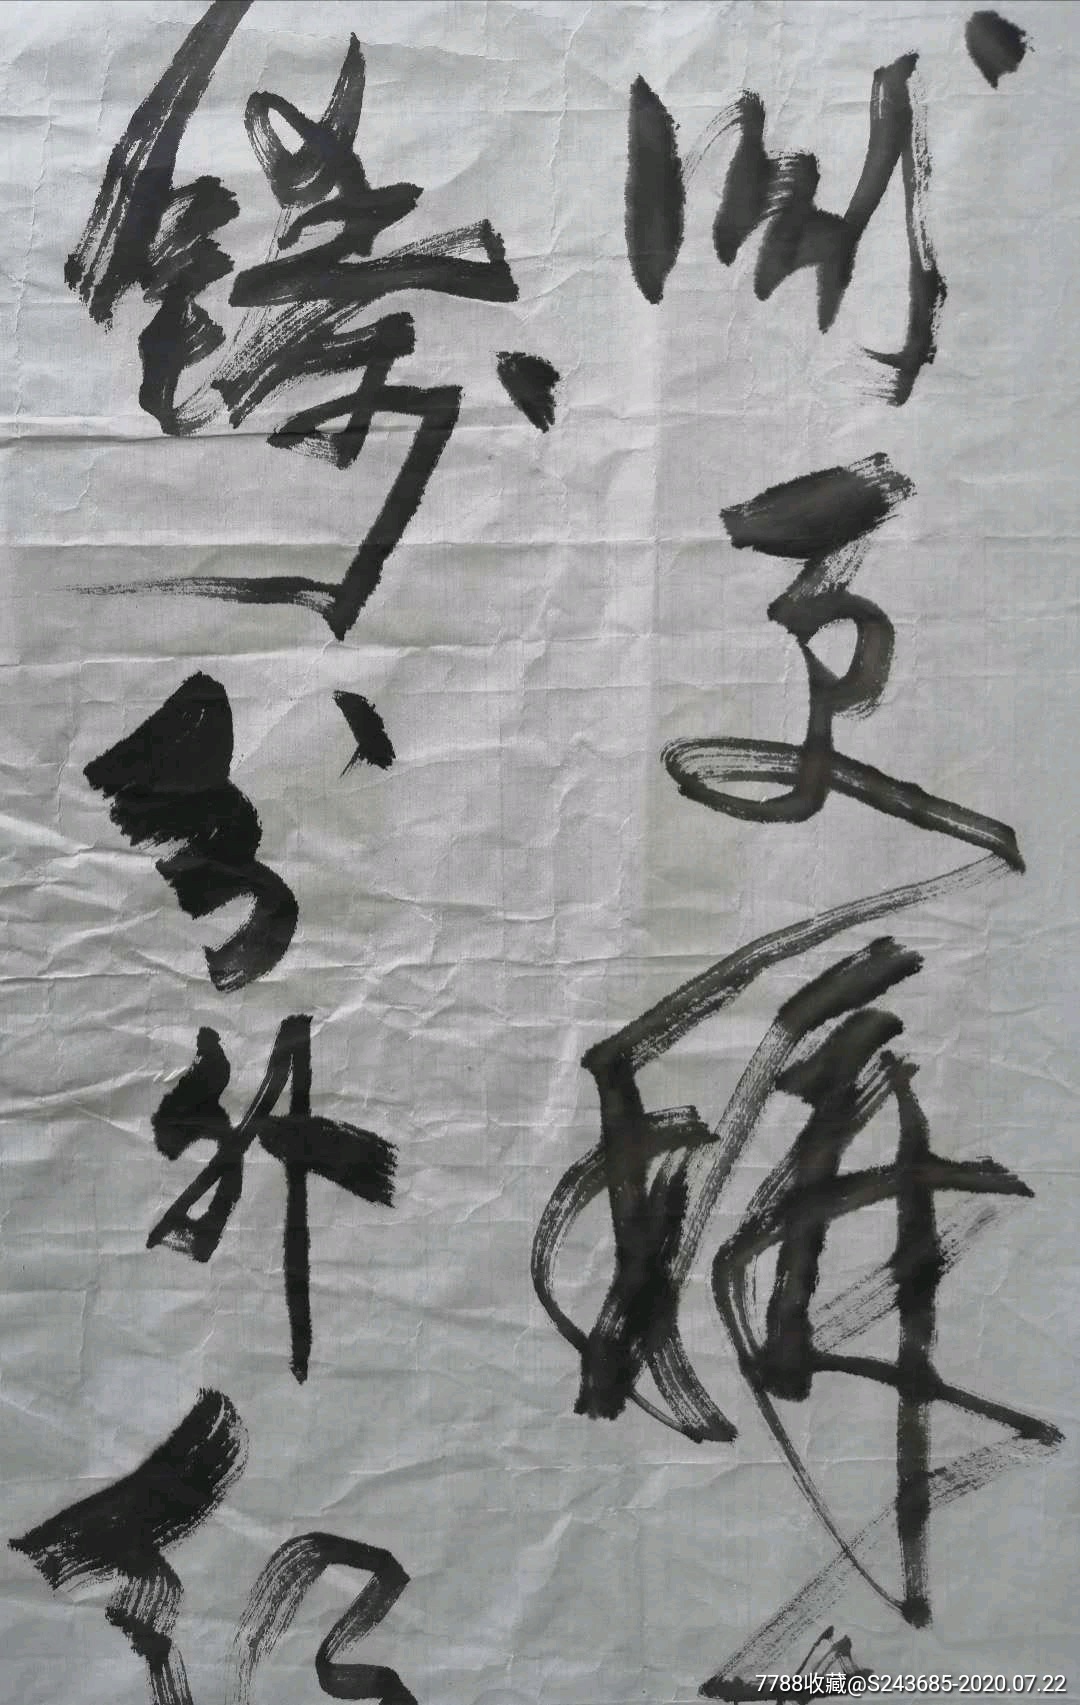 洲更稱
鑄分外红
7788收藏@S243685-2020.07.22